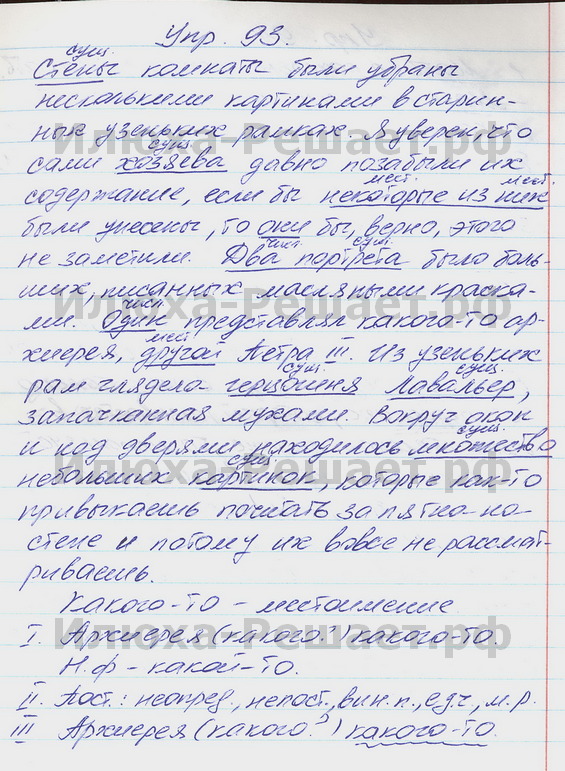 Упр. 93.
сущ.
Стены комнаты были убраны
несколькими картинами в старин-
ных узеньких рамках. Я уверен, что
сущ.
сами хозяева давно позабыли их
мест. мест.
содержание, если бы некоторые из них
были унесены, то они бы, верно, этого
числ. сущ.
не заметили. Два портрета было боль-
ших, писанных масляными краска-
числ.
ми. Один представлял какого-то ар-
мест.
хиерея, другой Петра III. Из узеньких
сущ. сущ.
рам глядела герцогиня Лавальер,
запачканная мухами. Вокруг окон
сущ.
и над дверями находилось множество
сущ.
небольших картинок, которые как-то
привыкаешь почитать за пятна на
стене и потому их вовсе не рассмат-
риваешь.
Какого-то - местоимение
I. Архиерея (какого?) какого-то.
Н.ф - какой-то.
II. Пост.: неопред., непост., вин.п., ед.ч., м.р.
III Архиерея (какого?) какого-то.
Илюха-Решает.рф
Илюха-Решает.рф
Илюха-Решает.рф
Илюха-Решает.рф